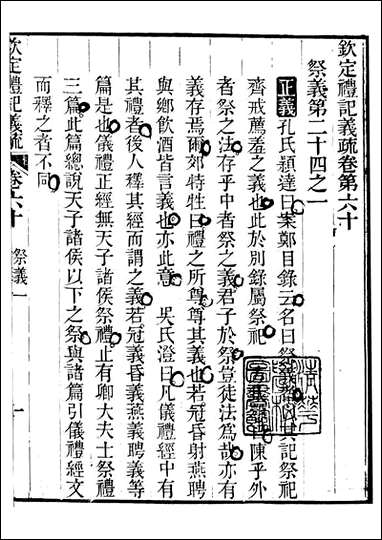 欽定禮記義疏卷第六十
祭義第二十四之一
正義孔氏穎達曰案鄭目錄云名曰祭義 其記祭祀
齊戒薦羞之義也此於別錄屬祭祀 陳乎外
者祭之法存乎中者祭之義君子於祭豈徒法爲哉亦有
義存焉爾郊特牲曰禮之所尊尊其義也若冠昏射燕聘
與鄉飲酒皆言義也亦此意 吳氏澄曰凡儀禮經中有
其禮者後人釋其經而謂之義若冠義昏義燕義聘義等
篇是也儀禮正經無天子諸侯祭禮止有卿大夫士祭禮
三篇此篇總說天子諸侯以下之祭與諸篇引儀禮經文
而釋之者不同
欽定禮記義疏 卷六十 祭義一 一